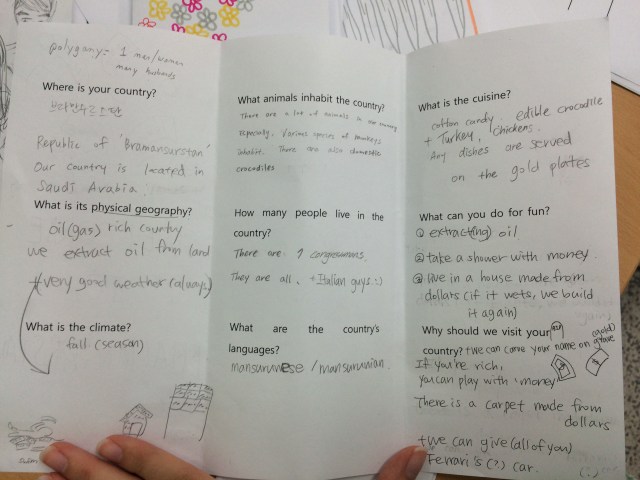 polygamy: 1 men/women
many husbands
Where is your country?
브라만수르스탄
Republic of 'Bramansurstan'
Our country is located in
Saudi Arabia.
What is its physical geography?
oil(gas) rich country
we extract oil from land
+(very good weather (always)
What is the climate?
fall (season)
What animals inhabit the country?
There are a lot of animals in our country
especially. Various species of monkeys
inhabit. There are also domestic
crocodiles
How many people live in the
country?
There are
They are all. +Italian guys :)
What are the country's
languages?
mansurunese / mansurunian
What is the cuisine?
cotton candy. edible crocodile
+ Turkey, chickens.
Any dishes are served
on the gold plates
What can you do for fun?
① extract(ing) oil
② take a shower with money
③ live in a house made from
dollars (if it wets, we build
it again)
Why should we visit your
country? +we can carve your name on a
(gold)
If you're rich,
you can play with money
There is a carpet made from
dollars
+we can give (all of you)
Ferrari's (?) car.